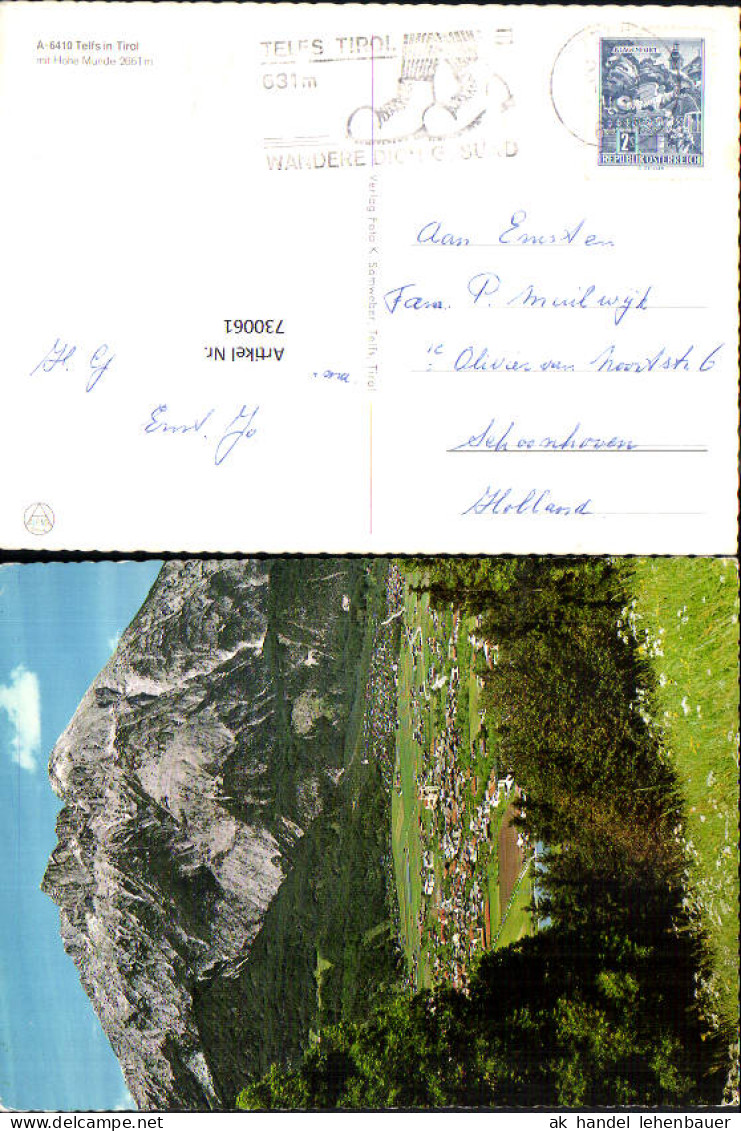 A-6410 Telfs in Tirol
mit Hohe Munde 2661 m
TELFS TIROL
631m
WANDERE DICH GESUND
KLAGENFURT
2S
REPUBLIK ÖSTERREICH
Verlag Foto K. Somweber, Telfs, Tirol
Artikel Nr.
730061
Aan
Fam. P. Muilwijk
Olivier van Noortstr 6
Schoonhoven
Holland
H. G
Ernst. Jo
ak handel lehenbauer